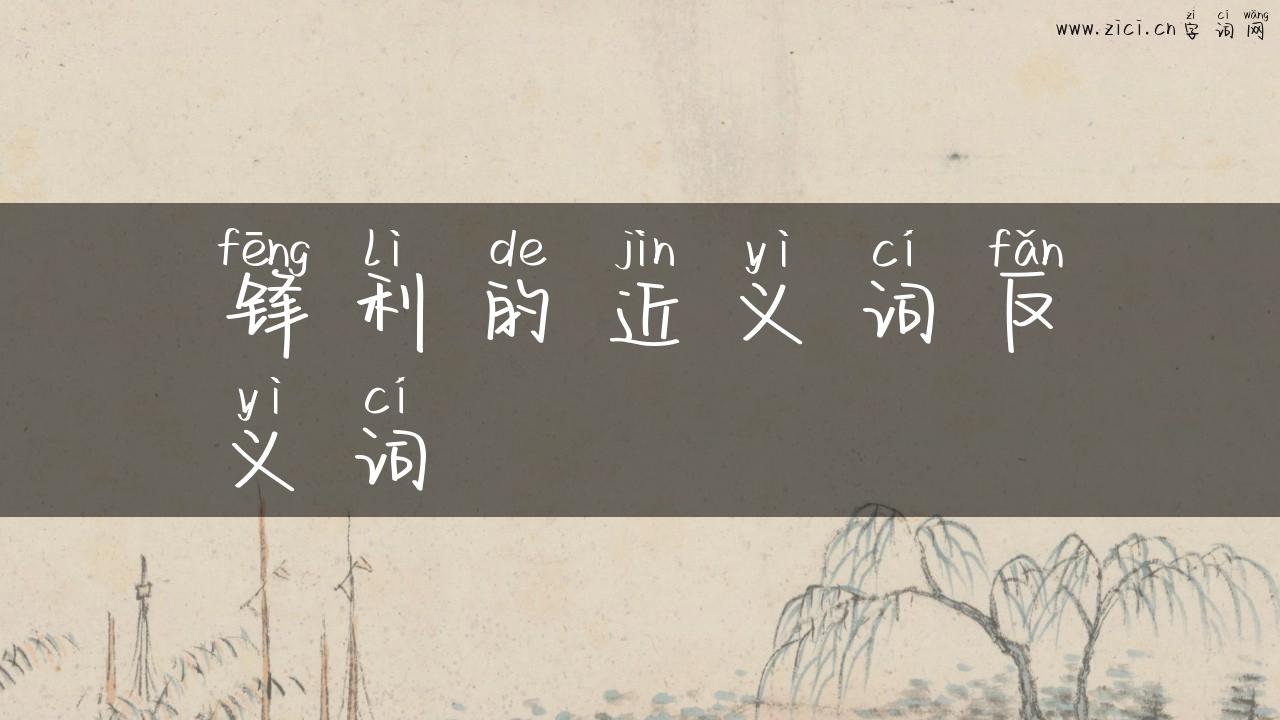 www.zici.cn zì cí wǎng
字词网
fēng lì de jìn yì cí fǎn
锋利的近义词反
yì cí
义词